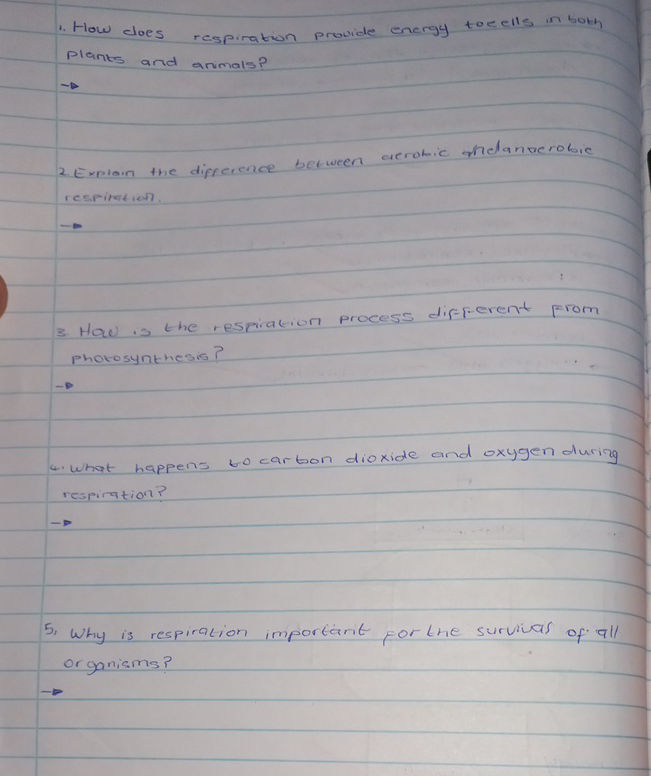 1. How does respiration provide energy to cells in both
plants and animals?
→
2. Explain the difference between aerobic and anaerobic
respiration.
→
3. How is the respiration process different from
photosynthesis?
→
4. What happens to carbon dioxide and oxygen during
respiration?
→
5. Why is respiration important for the survival of all
organisms?
→